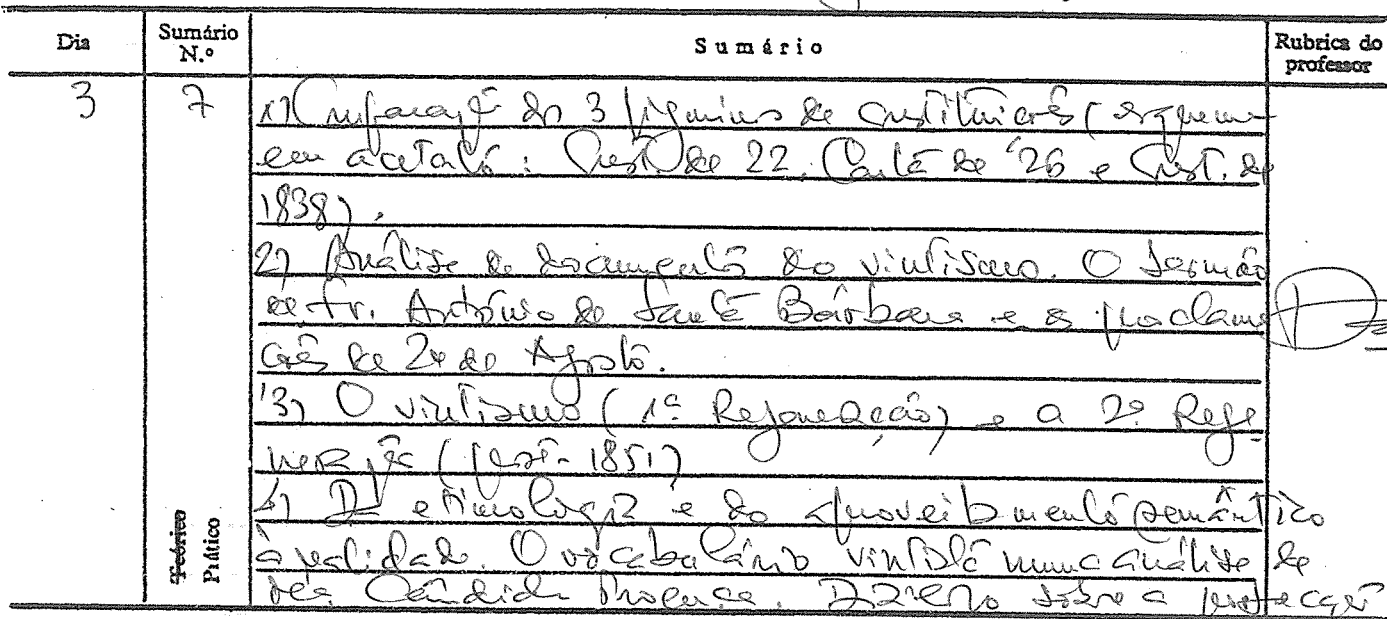 Dia Sumário N.º Sumário Rubrica do professor
3 7 1) Comparação dos 3 de Constituições (esquema
em acetato: Const. de 22, Carta de '26 e Const. de
1838).
2) Análise de documentos do vintismo. O Sermão
de Fr. António de Santa Bárbara e as proclama
ções de 24 de Agosto.
3) O vintismo (1ª Regeneração) e a 2ª Rege
neração (post-1851)
4) Da etimologia e do aproveitamento semântico
à realidade. O vocabulário vintista numa análise de
Cândida Proença. sobre a
Teórico
Prático